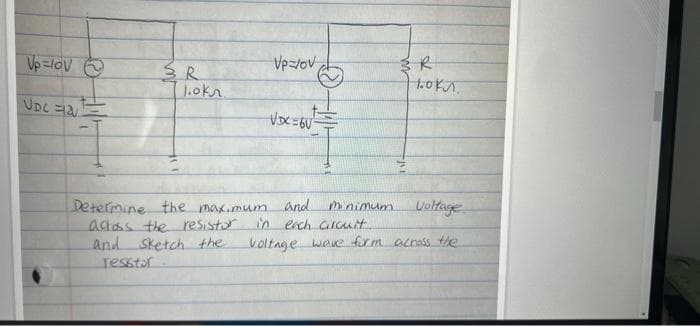 Vp=10V
VDC =12
R
1.0kΩ.
Vp=10V
VDC =6V
R
1.0kΩ.
Determine the maximum and minimum Voltage
across the resistor in each circuit
and sketch the voltage wave form across the
resstor